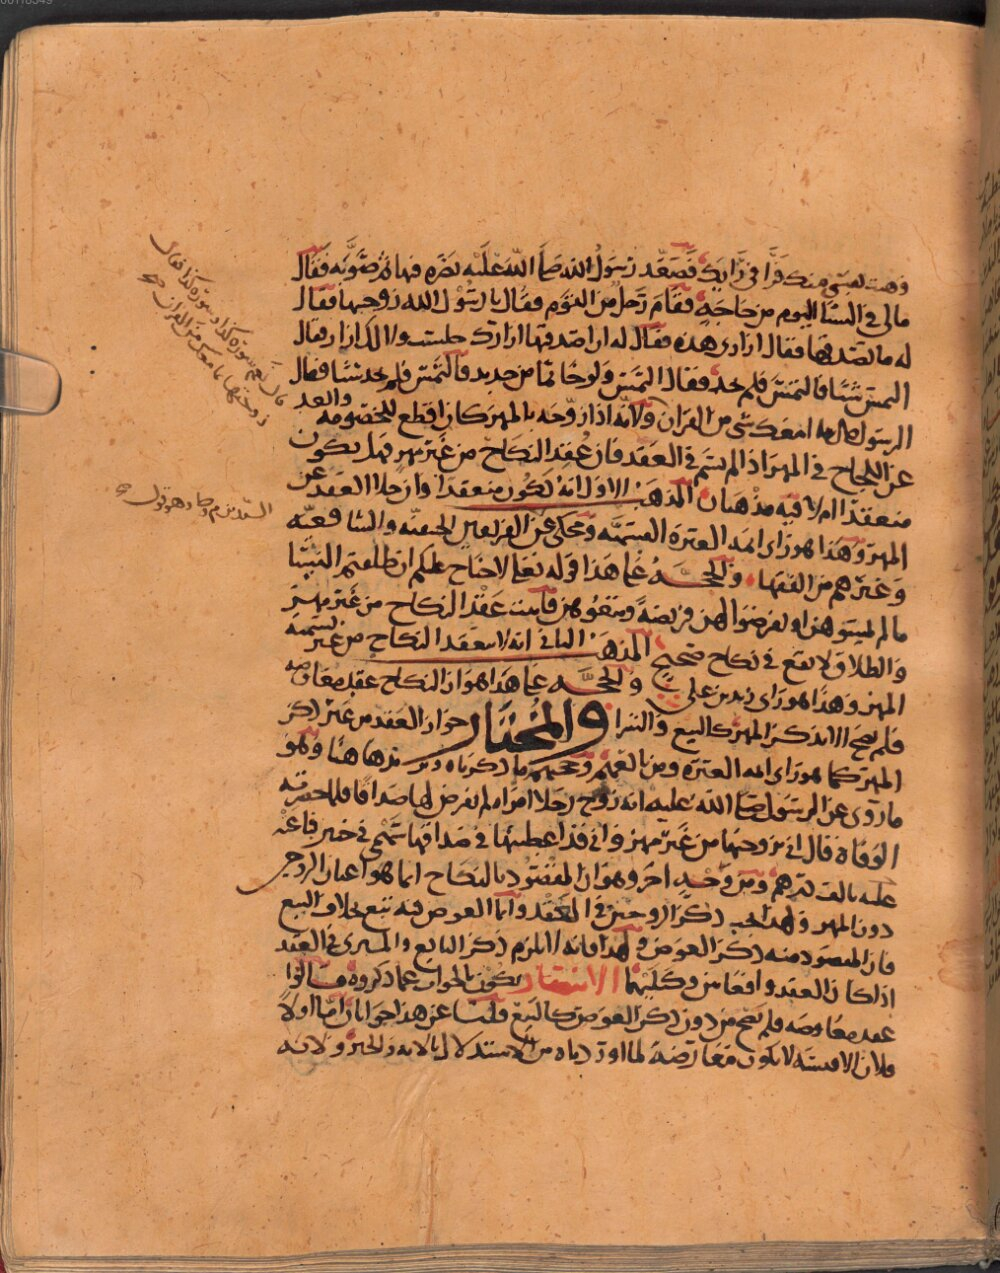 وهبت نفسي منك فرأ في رأيك فصعد رسول الله صلى الله عليه بصره فيها ثم صوبه فقال
مالي في النسا اليوم من حاجة فقام رجل من القوم فقال يا رسول الله زوجنيها فقال
له ما تصدقها فقال ازاري هذه فقال له ان اصدقتها ازارك جلست ولا لك ازار فقال
التمس شيا فالتمس فلم يجد فقال التمس ولو خاتما من حديد فالتمس فلم يجد شيا فقال
الرسول امعك شي من القران ولانه اذا زوجه بالمهر كان اقطع للخصومة وابعد
عن اللجاج في المهر اذا لم يسم في العقد فان عقد النكاح من غير مهر فهل يكون
منعقدا ام لا فيه مذهبان المذهب الاول انه يكون منعقدا وان خلا العقد عن
المهر وهذا هو راى ايمة العترة القسمية ومحكى عن الفريقين الحنفية والشافعية
وغيرهم من الفقها والحجة على هذا قوله تعالى لا جناح عليكم ان طلقتم النسا
ما لم تمسوهن او تفرضوا لهن فريضة ومتعوهن فاثبت عقد النكاح من غير مهر
والطلاق لا يقع في نكاح صحيح المذهب الثاني انه لا ينعقد النكاح من غير تسمية
المهر وهذا هو راى زيد بن علي والحجة على هذا هو ان النكاح عقد معاوضة
فلم يصح الا بذكر المهر كالبيع والشرا والمختار جواز العقد من غير ذكر
المهر كما هو راى ايمة العترة ومن تابعهم وحجتهم ما ذكرناه ونزيد هاهنا وهو
ما روى عن الرسول صلى الله عليه انه زوج رجلا امراة لم يفرض لها صداقا فلما حضرته
الوفاة قال اني تزوجتها من غير مهر واني قد اعطيتها في صداقها سهمي في خيبر فباعته
عليه بالف درهم ومن وجه اخر وهو ان المقصود بالنكاح انما هو اعيان الزوجين
دون المهر ولهذا يجب ذكر الزوجين في العقد وانما العوض فيه تبع بخلاف البيع
فان المقصود منه ذكر العوض ولهذا فانه لا يلزم ذكر البايع والمشتري في العقد
اذا كان العقد واقعا من وكليهما الانتصار يكون الجواب عما ذكروه قالوا
عقد معاوضة فلم يصح من دون ذكر العوض كالبيع قلنا عن هذا جوابان اما اولا
فلان الاقيسة لا تكون معارضة لما اوردناه من الاستدلال بالاية والخبر ولانه
قال نعم سورة كذا وسورة كذا فقال
زوجتكها بما معك من القران